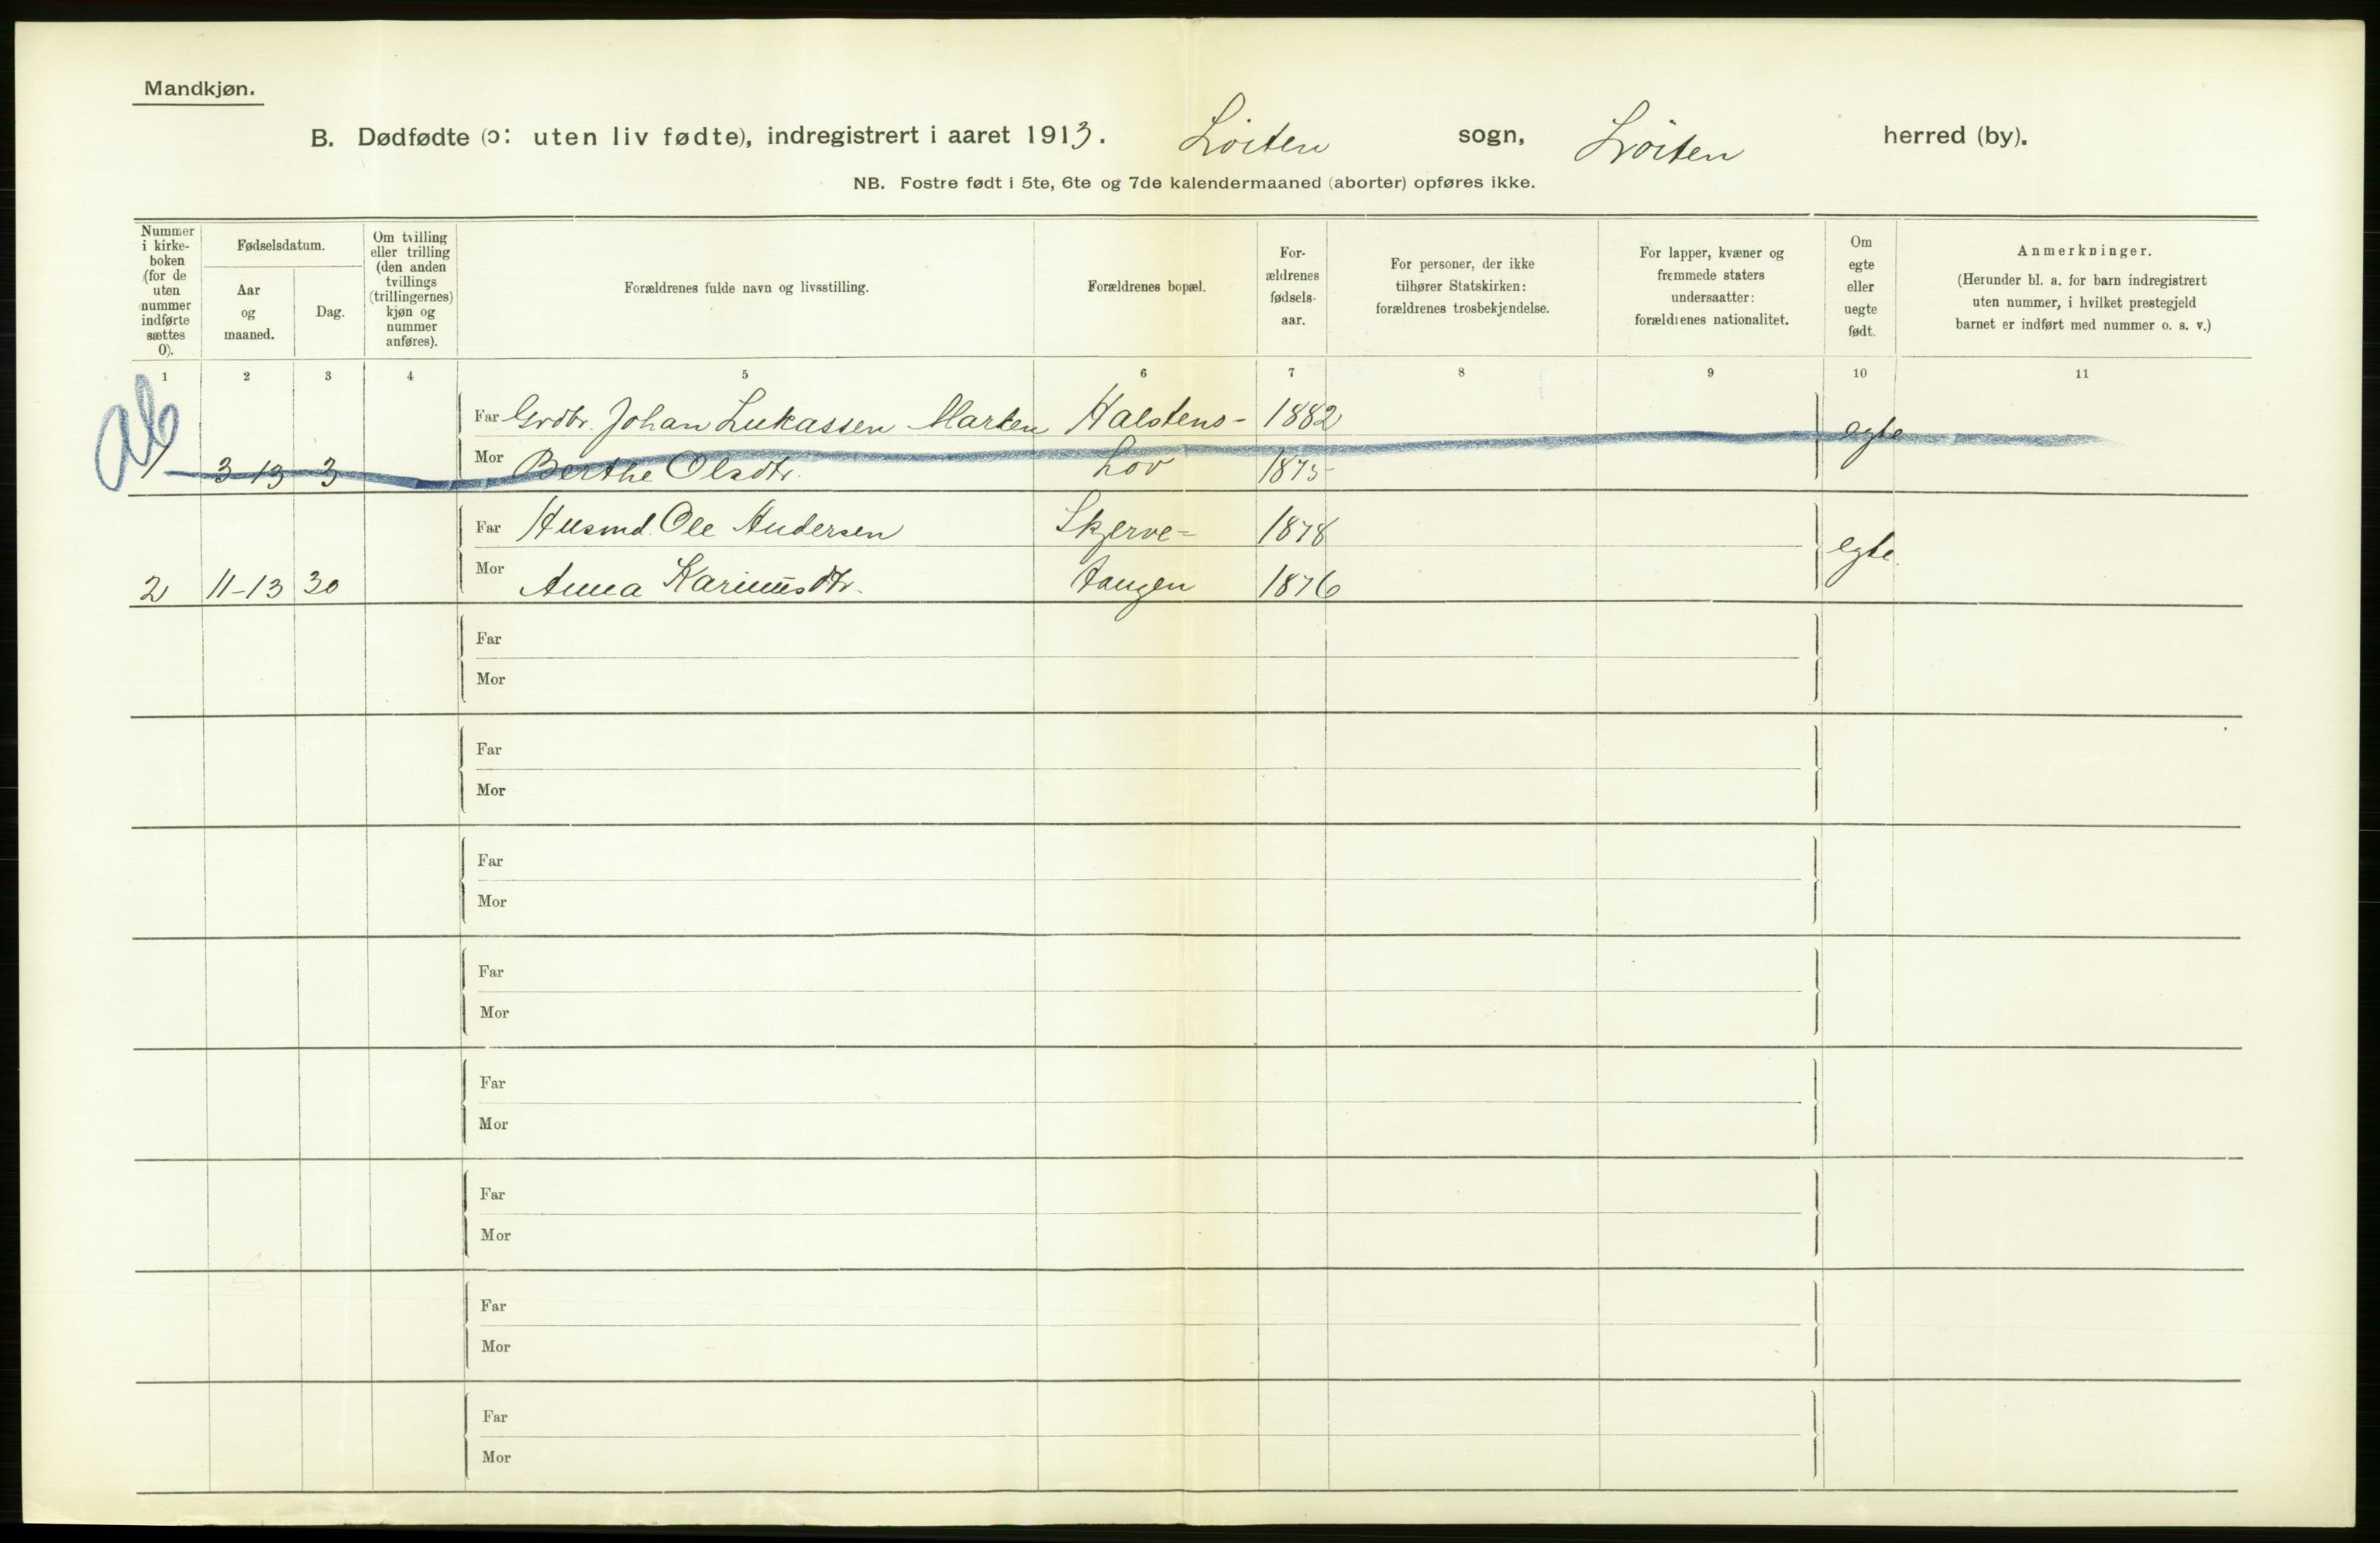 Mandkjøn.
B. Dødfødte (ɔ: uten liv fødte), indregistrert i aaret 1913. Löiten sogn, Löiten herred (by).
NB. Fostre født i 5te, 6te og 7de kalendermaaned (aborter) opføres ikke.
Nummer
i kirke-
boken
(for de
uten
nummer
indførte
sættes
0).
Fødselsdatum.
Aar
og
maaned.
Dag.
Om tvilling
eller trilling
(den anden
tvillings
(trillingernes)
kjøn og
nummer
anføres).
Forældrenes fulde navn og livsstilling.
Forældrenes bopæl.
For-
ældrenes
fødsels-
aar.
For personer, der ikke
tilhører Statskirken:
forældrenes trosbekjendelse.
For lapper, kvæner og
fremmede staters
undersaatter:
forældrenes nationalitet.
Om
egte
eller
uegte
født.
Anmerkninger.
(Herunder bl. a. for barn indregistrert
uten nummer, i hvilket prestegjeld
barnet er indført med nummer o. s. v.)
1 2 3 4 5 6 7 8 9 10 11
ab
Far Grdbr. Johan Lukassen Marken Halstens- 1882 egte
1 3-13 3 Mor Berthe Olsdtr. hov 1875
Far Husmd. Ole Andersen Skjerve- 1878 egte.
2 11-13 30 Mor Anna Karinusdtr. haugen 1876
Far
Mor
Far
Mor
Far
Mor
Far
Mor
Far
Mor
Far
Mor
Far
Mor
Far
Mor